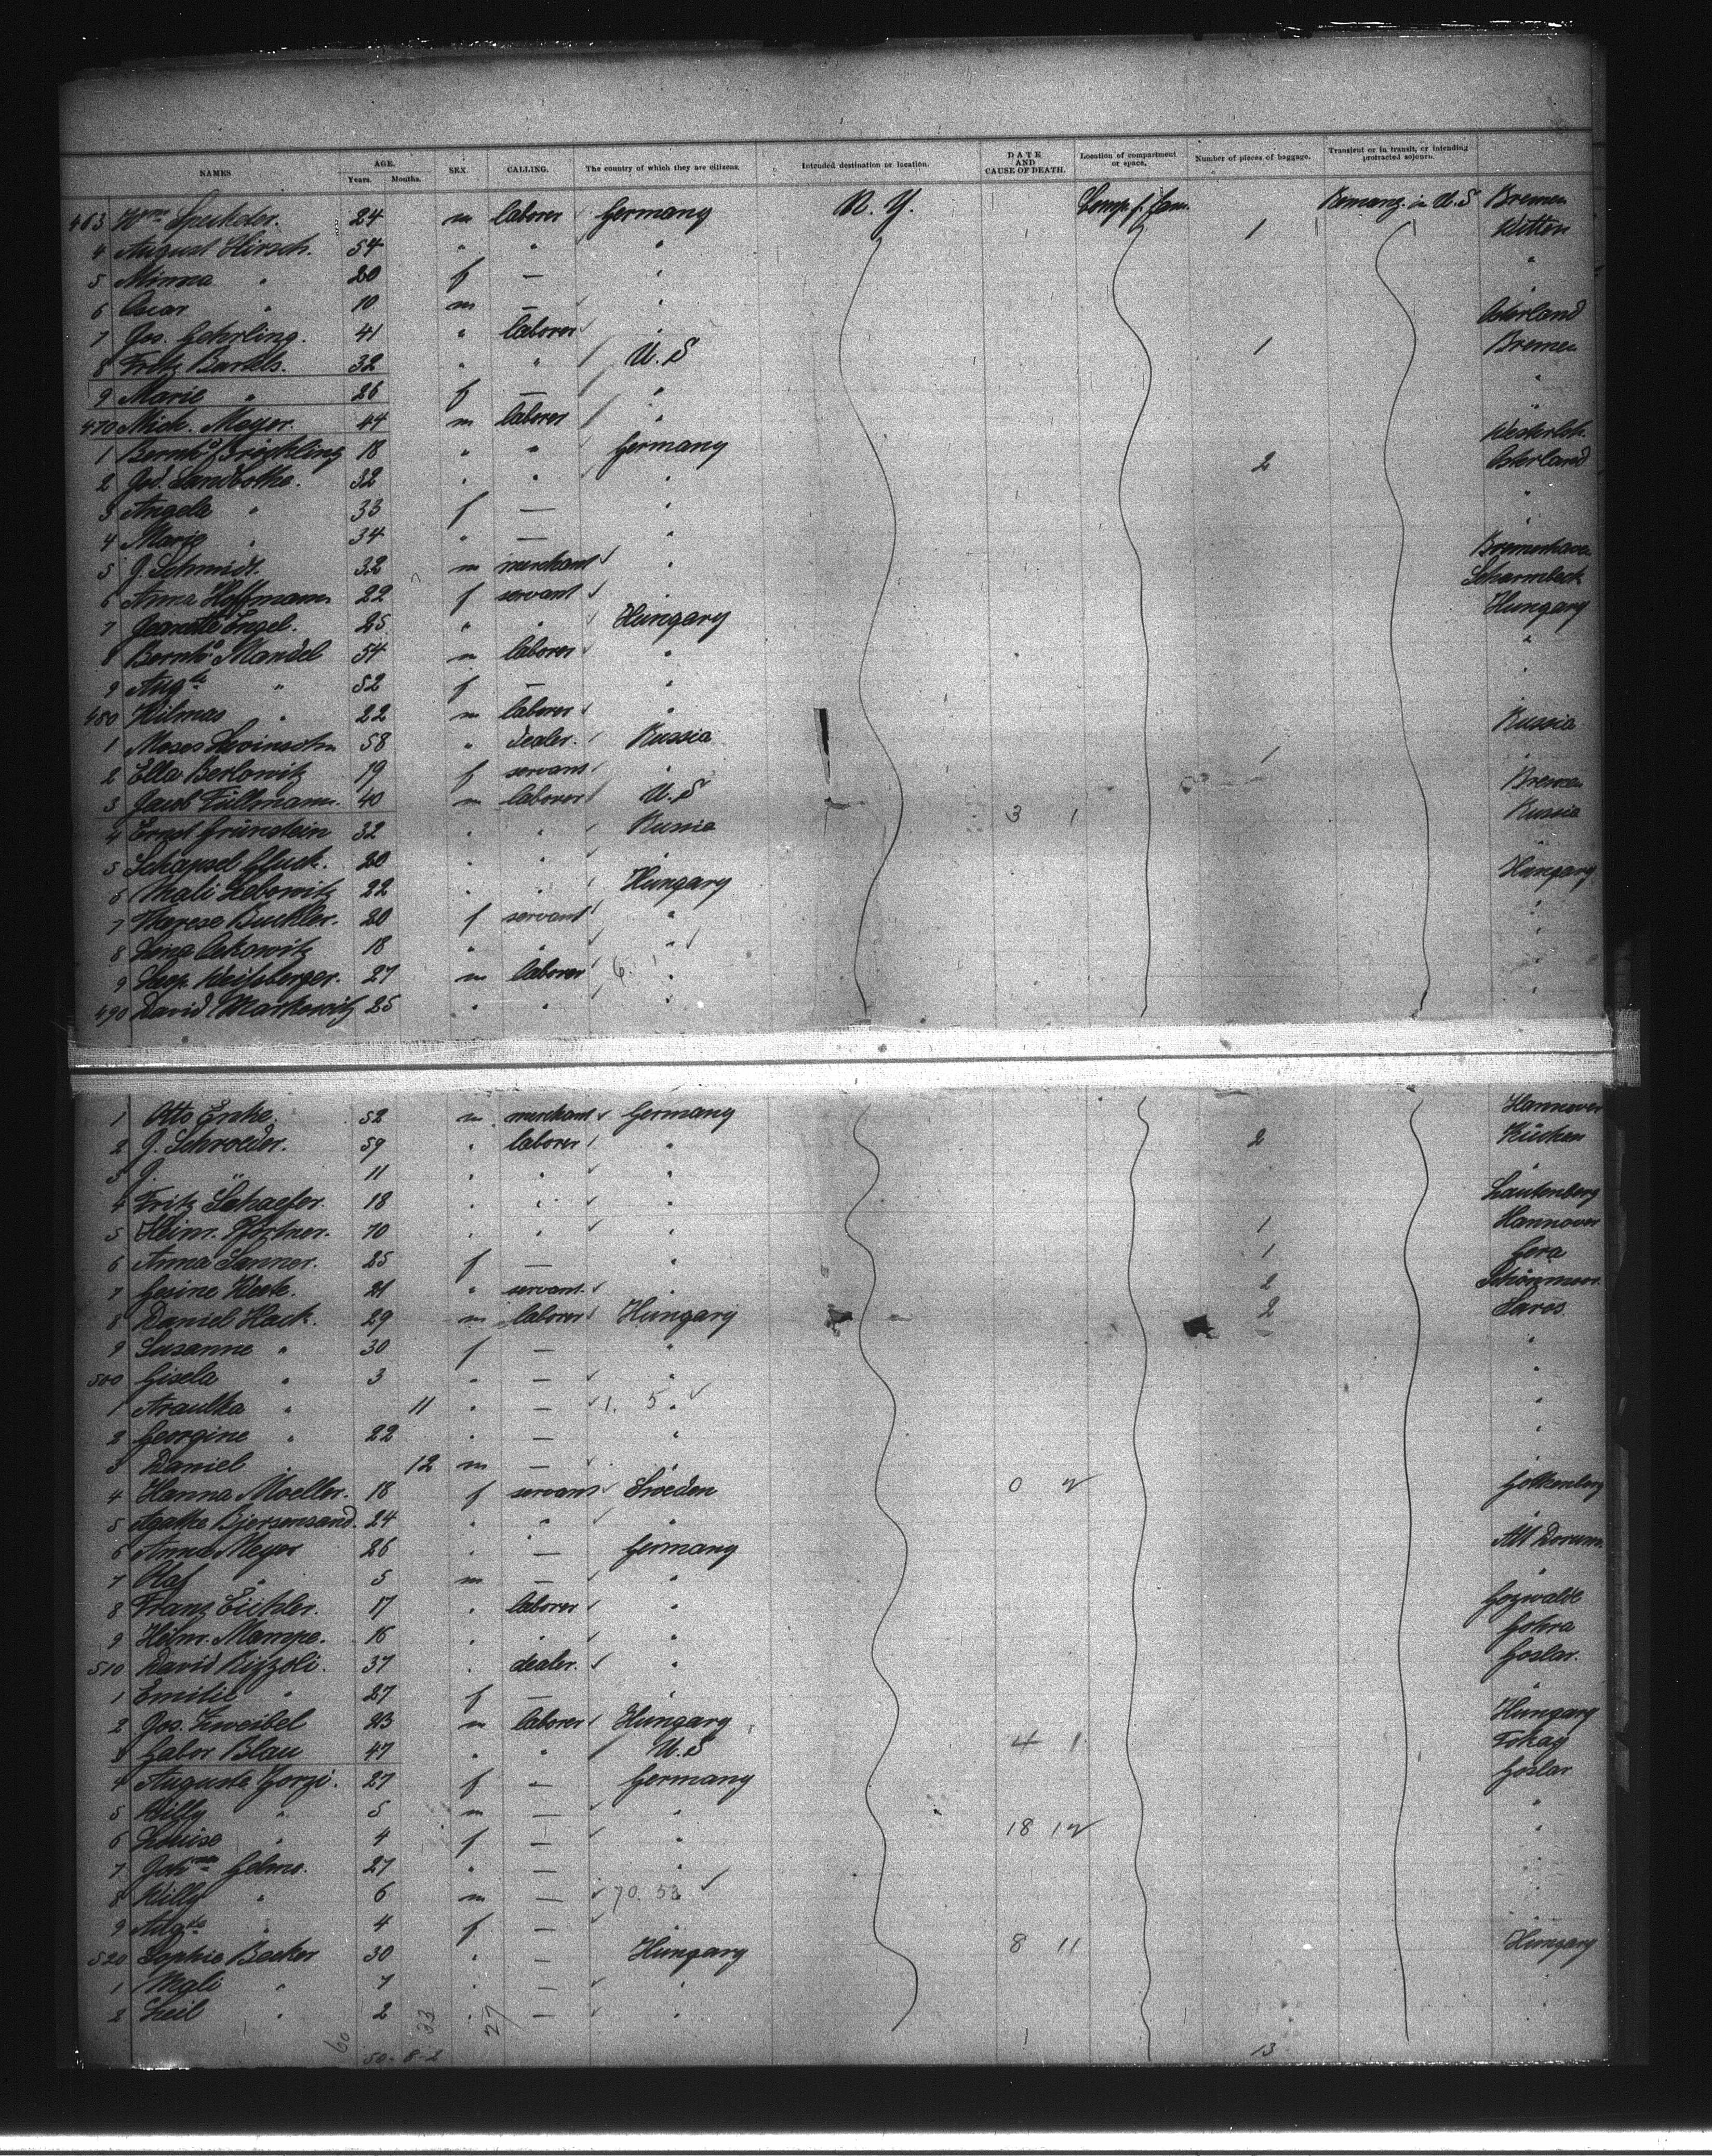 NAMES AGE. Years. Months. SEX. CALLING. The country of which they are citizens. Intended destination or location. DATE AND CAUSE OF DEATH. Location of compartment or space. Number of pieces of baggage. Transient or in transit, or intending protracted sojourn.
463 Wm 24 m laborer Germany N.Y. Remang. in U.S Bremen
4 August Hirsch. 54 " " " 1 Witten
5 Minna " 20 f — " "
6 Oscar " 10 m — "
7 Jos. Gehrling. 41 " laborer " Osterland
8 Fritz Bartels. 32 " " U.S 1 Bremen
9 Marie " 26 f — " "
470 Mich. Meyer. 44 m laborer " "
1 Bernhd Bröckling 18 " " Germany
2 Jos. Sandbothe. 32 " " " 2 Osterland
3 Angela " 33 f — " "
4 Marie " 34 " — " "
5 J. Schmidt. 32 m merchant " Bremerhaven
6 Anna Hoffmann 22 f servant " Scharmbeck
7 Jeanette Engel. 25 " " Hungary Hungary
8 Bernhd Mandel 54 m laborer " "
9 Augte " 52 f — " "
480 Wilmas " 22 m laborer " "
1 Moses Levinsohn 58 " dealer. Russia Russia
2 Ella Berlowitz 19 f servant " 1
3 Jacob Füllmann. 40 m laborer U.S Bremen
4 Ernst Grünstein 32 " " Russia 3 1 Russia
5 Schapsel Gluck. 20 " " " "
6 Mali Lebowitz 22 " " Hungary Hungary
7 Therese Buckler. 20 f servant " "
8 Lena 18 " " " "
9 Leop. Weissberger. 27 m laborer 6. " "
490 David Markowitz 25 " " " "
1 Otto Enke 52 m merchant Germany Hannover
2 J. Schroeder. 59 " laborer " 2
3 J. " 11 " " " "
4 Fritz Schaefer. 18 " " " Lautenberg
5 Heinr. Pförtner. 70 " " " 1 Hannover
6 Anna Sanner. 25 f — " 1 Gera
7 Gesine 21 " servant. " 2
8 Daniel Hack. 29 m laborer Hungary 2 Sares
9 Susanne " 30 f — " "
500 Gisela " 3 " — " "
1 " 11 " — 1. 5 " "
2 Georgine " 22 " — " "
3 Daniel " 12 m — "
4 Hanna Moeller. 18 f servant Sweden 0 2 Gothenburg
5 Agathe 24 " " " "
6 Anna Meyer 26 " — Germany Alt Dorum.
7 Olaf " 5 m — " "
8 Franz Eichler. 17 " laborer "
9 Heinr. Mampe. 16 " " " Gohra
510 David Rizzoli. 37 " dealer. " Goslar.
1 Emilie " 27 f — " "
2 Jos. Zweibel 23 m laborer Hungary Hungary
3 Gabor Blau 47 " " U.S 4 1 Tokay
4 Auguste Zorzi. 27 f — Germany Goslar
5 Willy " 5 m — " "
6 Louise " 4 f — " 18 12 "
7 Johnna Gelmo. 27 " — " "
8 Willy " 6 m — 70. 53 "
9 Augte " 4 f — " "
520 Sophie Becker 30 " — Hungary 8 11 Hungary
1 Mali " 7 " — " "
2 " 2 " — " "
60 33 27
50-8-2 13